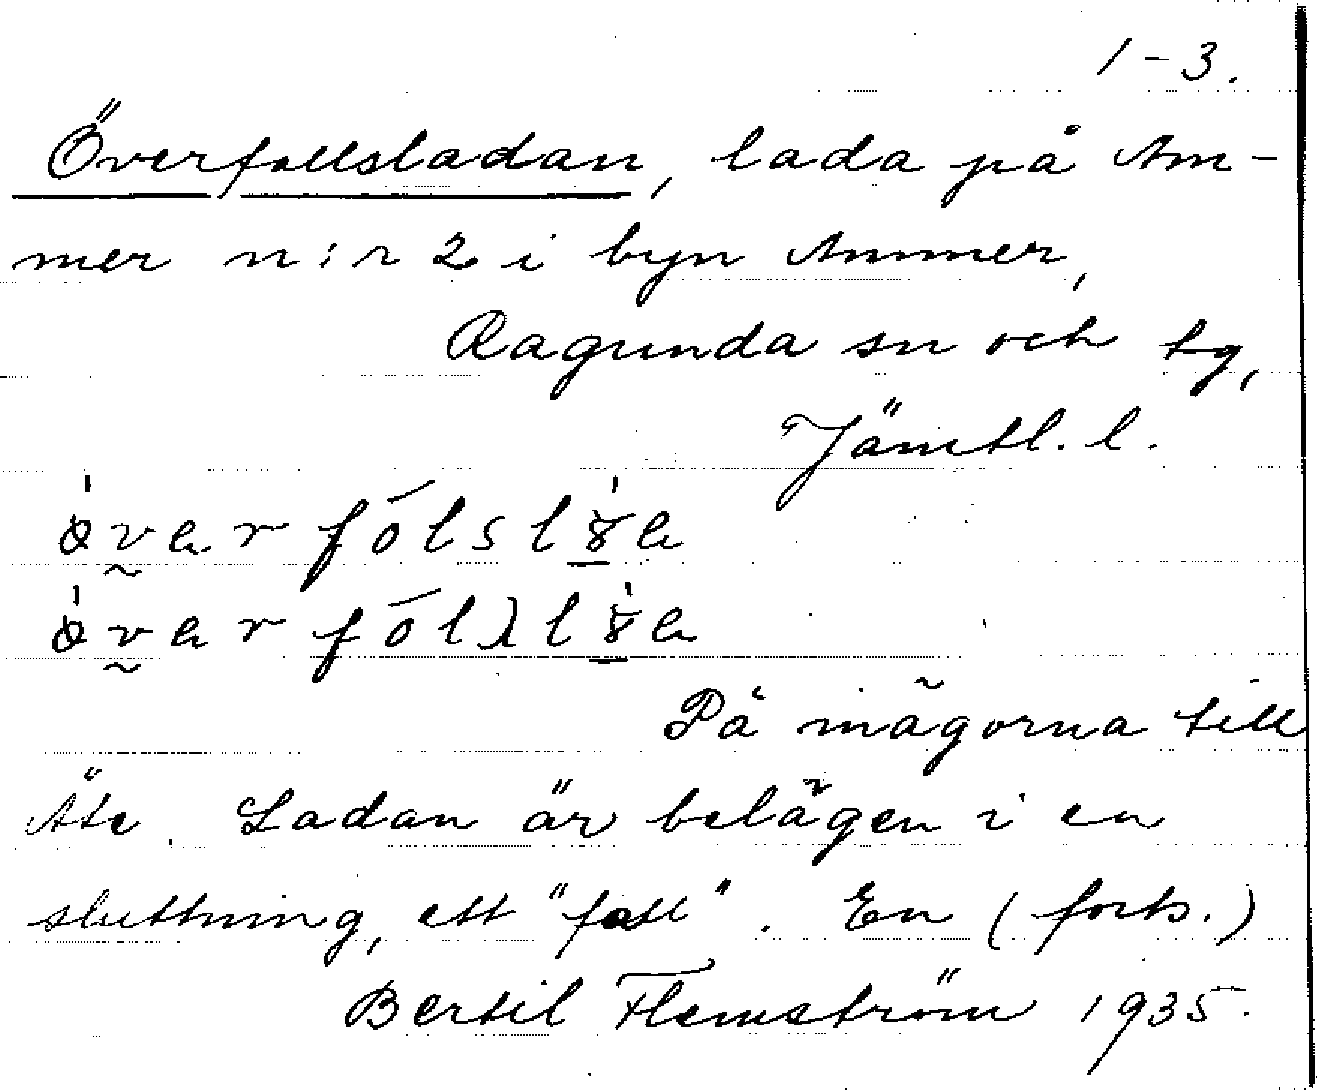 1-3.
Överfallsladan, lada på Am-
mer n:r 2 i byn Ammer,
Ragunda sn och tg,
Jämtl. l.
På mägorna till
Äte. Ladan är belägen i en
sluttning, ett "fall". En (forts.)
Bertil Flemström 1935.